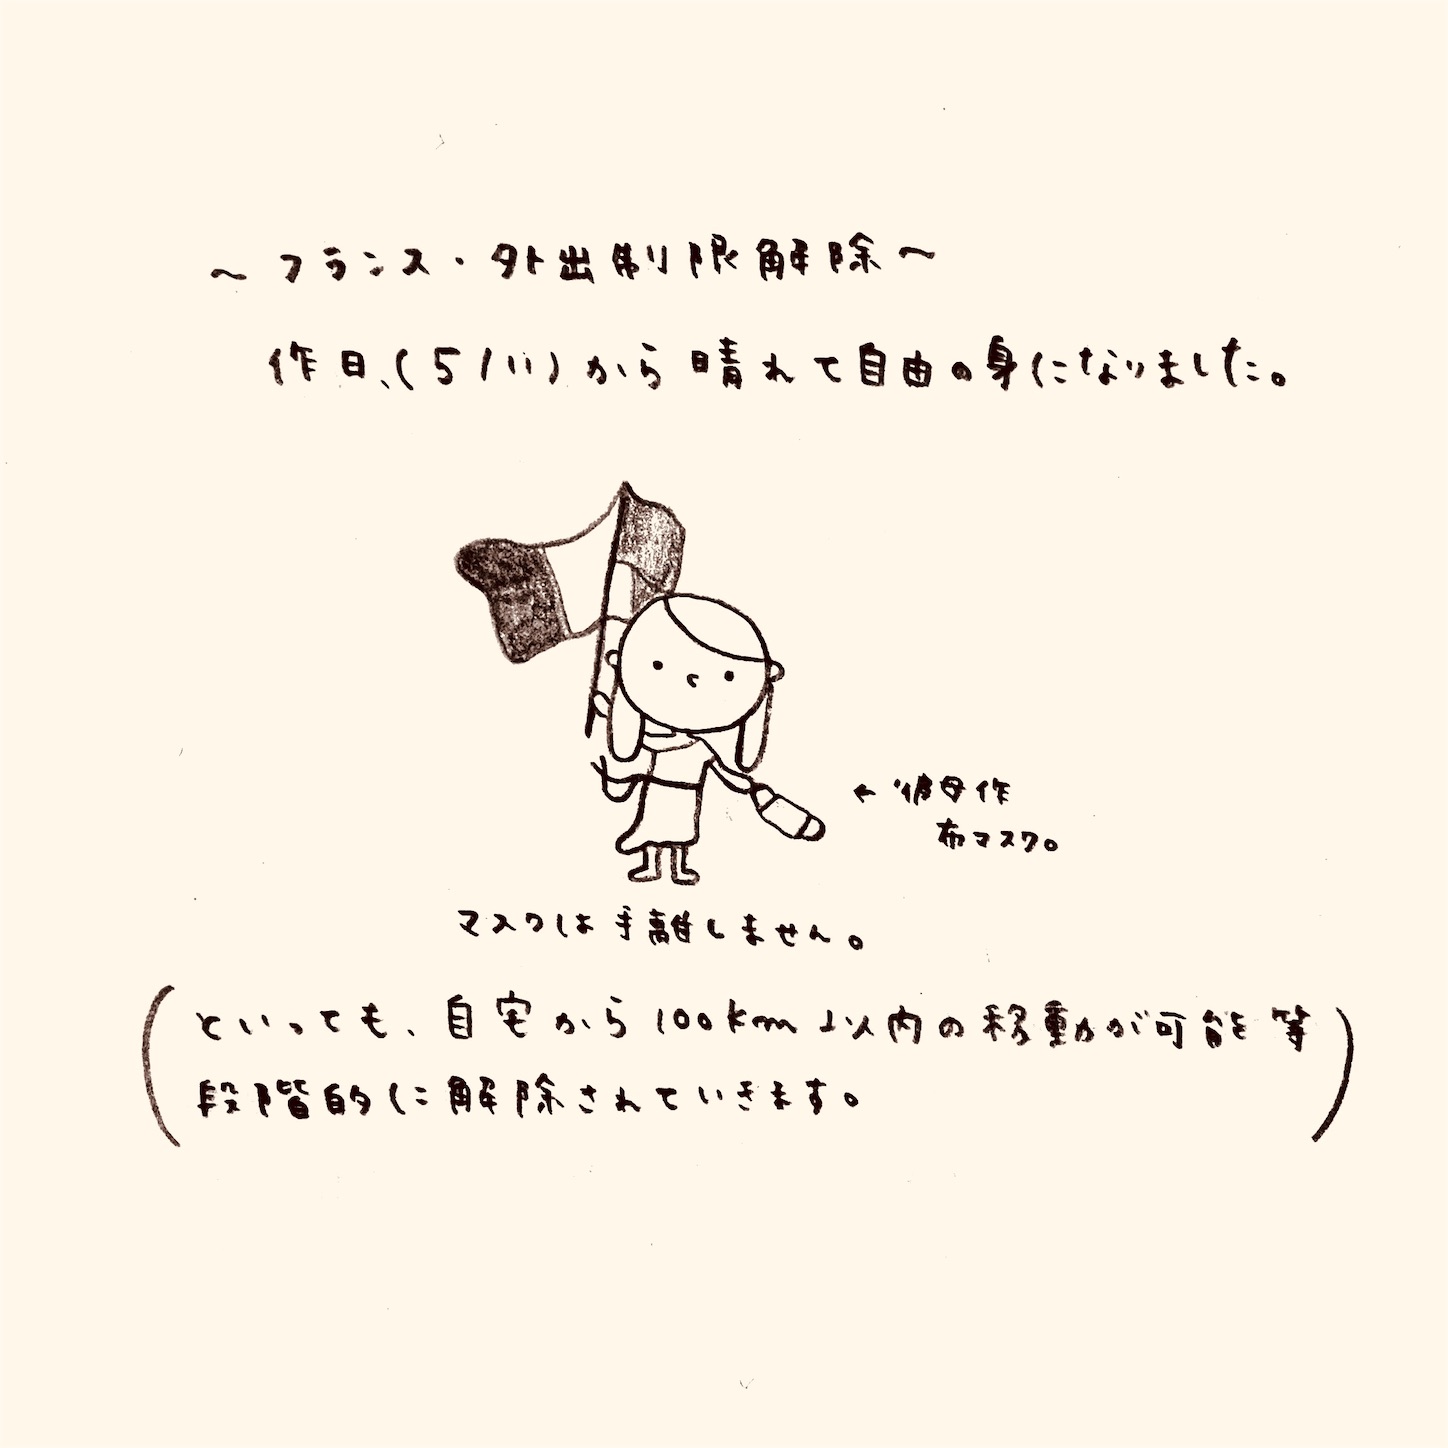 ～フランス・外出制限解除～
作日、(5/11)から晴れて自由の身になりました。
← 彼母作
布マスク。
マスクは手離しません。
(といっても、自宅から100km以内の移動が可能等
段階的に解除されていきます。)